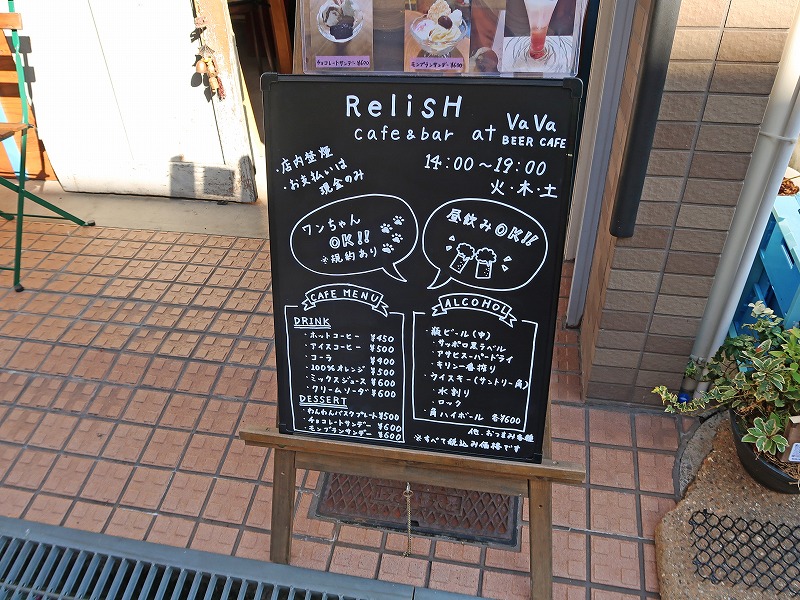 チョコレートサンデー ¥600
モンブランサンデー ¥600
RelisH
cafe & bar at VaVa
BEER CAFE
14:00～19:00
火・木・土
・店内禁煙
・お支払いは
現金のみ
ワンちゃん
OK!!
※規約あり
昼飲みOK!!
CAFE MENU
DRINK
・ホットコーヒー ¥450
・アイスコーヒー ¥500
・コーラ ¥400
・100%オレンジ ¥500
・ミックスジュース ¥600
・クリームソーダ ¥600
DESSERT
・わんわんバスクプレート ¥500
・チョコレートサンデー ¥600
・モンブランサンデー ¥600
ALCOHOL
・瓶ビール(中)
・サッポロ黒ラベル
・アサヒスーパードライ
・キリン一番搾り
・ウイスキー(サントリー角)
・水割り
・ロック
・角ハイボール 各¥600
他、おつまみ各種
※すべて税込み価格です